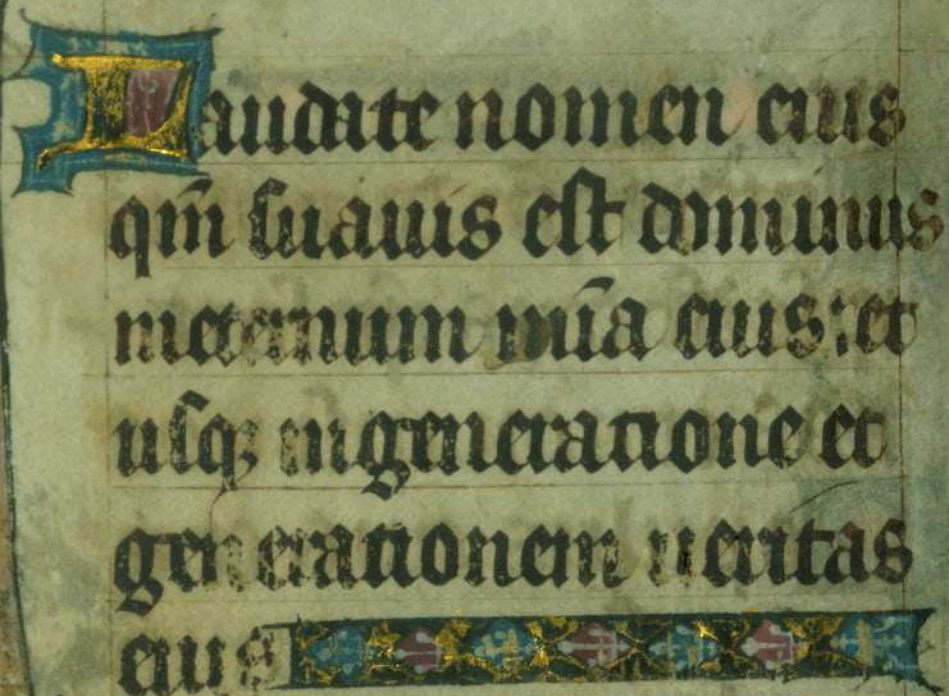 Laudate nomen eius
qm̄ suauis est dominus
ineternum mīa eius: et
usqꝫ in generatione et
generationem ueritas
eius